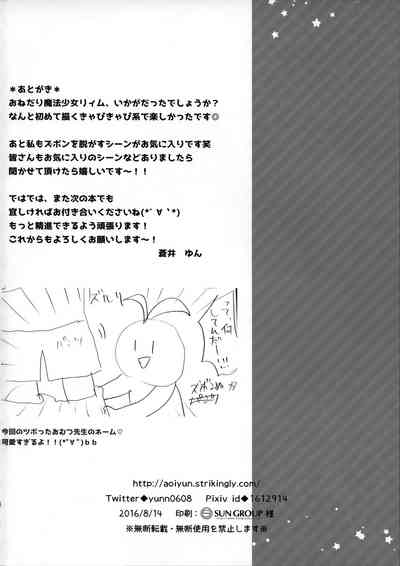 ＊あとがき＊
おねだり魔法少女リィム、いかがだったでしょうか？
なんと初めて描くきゃぴきゃぴ系で楽しかったです◎
あと私もズボンを脱がすシーンがお気に入りです笑
皆さんもお気に入りのシーンなどありましたら
聞かせて頂けたら嬉しいです～！！
ではでは、また次の本でも
宜しければお付き合いくださいね(*´∀`*)
もっと精進できるよう頑張ります！
これからもよろしくお願いします～！
蒼井　ゆん
ズルッ
パンツ
って、何
してんだー!!
ズボンぬが
今回のツボったおむつ先生のネーム♡
可愛すぎるよ！！(*ﾟ∀ﾟ)ｂｂ
http://aoiyun.strikingly.com/
Twitter◆yunn0608　Pixiv id◆1612914
2016/8/14　印刷：SUN GROUP 様
※無断転載・無断使用を禁止します※